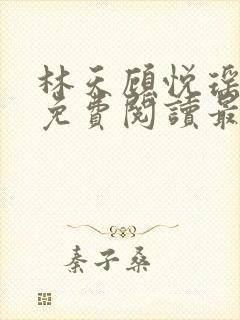 林天顾悦瑶
免費閱讀最
秦子桑